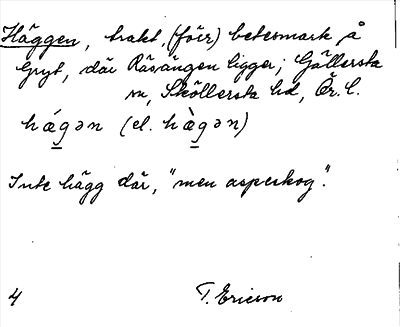 Häggen, trakt, (förr) betesmark å
Gryt, där Räsängen ligger; Gällersta
sn, Sköllersta hd, Ör. l.
hǽgən (el. hæ̀gən)
Inte hägg där, "men aspeskog".
4 T. Ericson